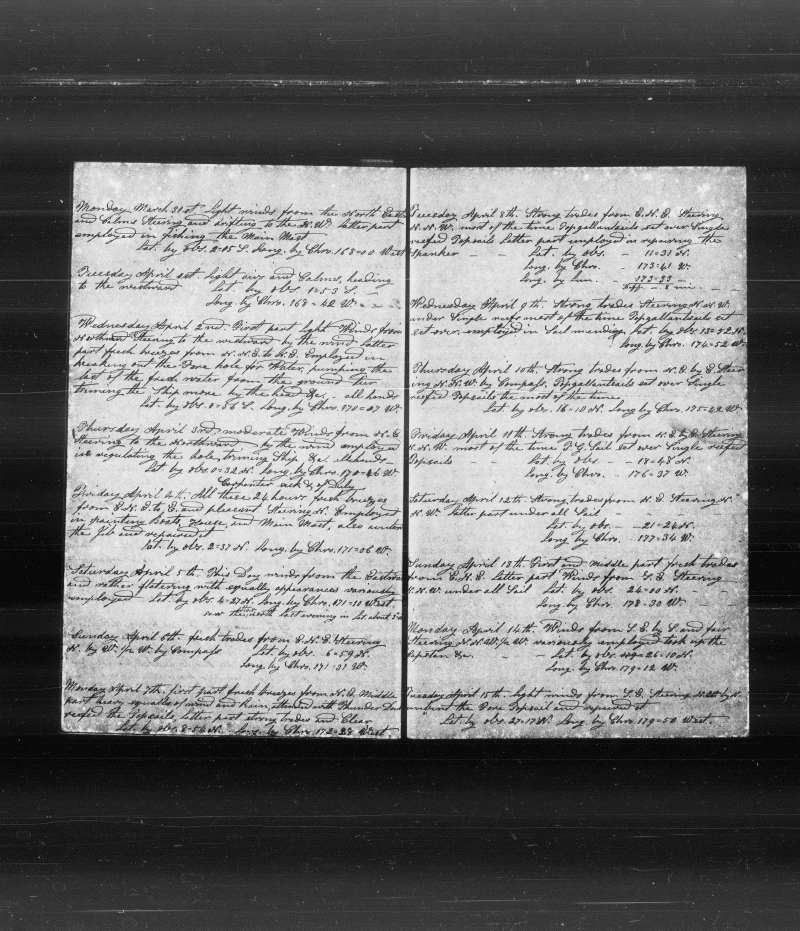 Monday March 31st light winds from the North East
and Calms Steering and drifting to the N.W. latter part
employed in fishing the Main Mast
Lat. by obs. 2=05 S. Long. by Chro. 168=00 West
Tuesday April 1st light airs and Calms, heading
to the westward Lat. by obs. 1=53 S. -
Long. by Chro. 169 = 42 W. -
Wednesday April 2nd. First part light Winds from
Northward Steering to the westward by the wind latter
part fresh breezes from N.N.E. to N.E. Employed in
breaking out the Fore hole for Water, pumping the
last of the fresh water from the ground tier
trimming the Ship more by the head &c. - all hands
Lat. by obs. 0=56 S. Long. by Chro. 170=07 W.
Thursday April 3rd moderate Winds from N.E.
Steering to the Northward by the wind employed
in regulating the hole, triming Ship &c. all hands
Lat by obs 0=32 N. Long. by Chro. 170=46 W.
Carpenter sick & off duty
Friday April 4th. All these 24 hours fresh breezes
from E.N.E. to E. and pleasent Steering N. Employed
in painting Boats, House, and Main Mast, also unbent
the Jib and repaired it
Lat. by obs. 2=37 N. Long. by Chro. 171=06 W.
Saturday April 5th. This Day winds from the Eastward
and rather flatering with squally appearances variously
employed Lat by obs. 4=27 N. Long. by Chro. 171=10 West.
last evening in Lat. about
Sunday April 6th. fresh trades from E.N.E. Steering
N. by W. ½ W. by Compass Lat. by obs. 6=59 N.
Long by Chro. 171=31 W.
Monday April 7th. first part fresh breezes from N.E. Middle
part heavy squalls of wind and Rain, attended with Thunder
reefed the Topsails, latter part strong trades and Clear
Lat. by obs. 8=54 N - Long. by Chro. 172=28 West
Tuesday April 8th. Strong trades from E.N.E. Steering
N.N.W. most of the time Topgallantsails set over Single
reefed Topsails latter part employed in repairing the
Spanker - - Lat. by obs. - 11=31 N.
Long. by Chro. - 173=41 W.
Long. by Lun. - 173=33 -
Diff - 8 mi. -
Wednesday April 9th. Strong trades Steering N.N.W.
under Single reefs most of the time Topgallantsails set
set over. employed in Sail mending. Lat. by obs 13=52 N.
Long by Chro. 174=52 W.
Thursday April 10th. Strong trades from N.E. by E. Steer
ing N.N.W. by Compass, Topgallantsails set over Single
reefed Topsails the most of the time.
Lat by obs. 16=10 N. Long by Chro. 175=22 W.
Friday April 11th. Strong trades from N.E. by E. Steering
N.N.W. most of the time T.G. Sail set over Single reefed
Topsails - Lat. by obs - - 18=48 N.
Long. by Chro. - 176=37 W.
Saturday April 12th Strong trades from N.E. Steering N.
N.W. latter part under all Sail -
Lat. by obs. - - 21=24 N.
Long by Chro. - 177=34 W.
Sunday April 13th. First and middle part fresh trades
from E.N.E. Latter part Winds from S.E. Steering
N.N.W. under all Sail Lat. by obs. 24=00 N.
Long by Chro. 178=30 W.
Monday April 14th. Winds from S.E. by S and fair
Steering N.N.W. ½ W. variously employed took up the
&c. - Lat by obs. 26=10 N.
Long. by Chro 179=12 W.
Tuesday April 15th. light winds from S.E. Steering N.W. by N.
unbent the Fore Topsail and repaired it
Lat by obs 27=17 N. Long. by Chro. 179=50 West.